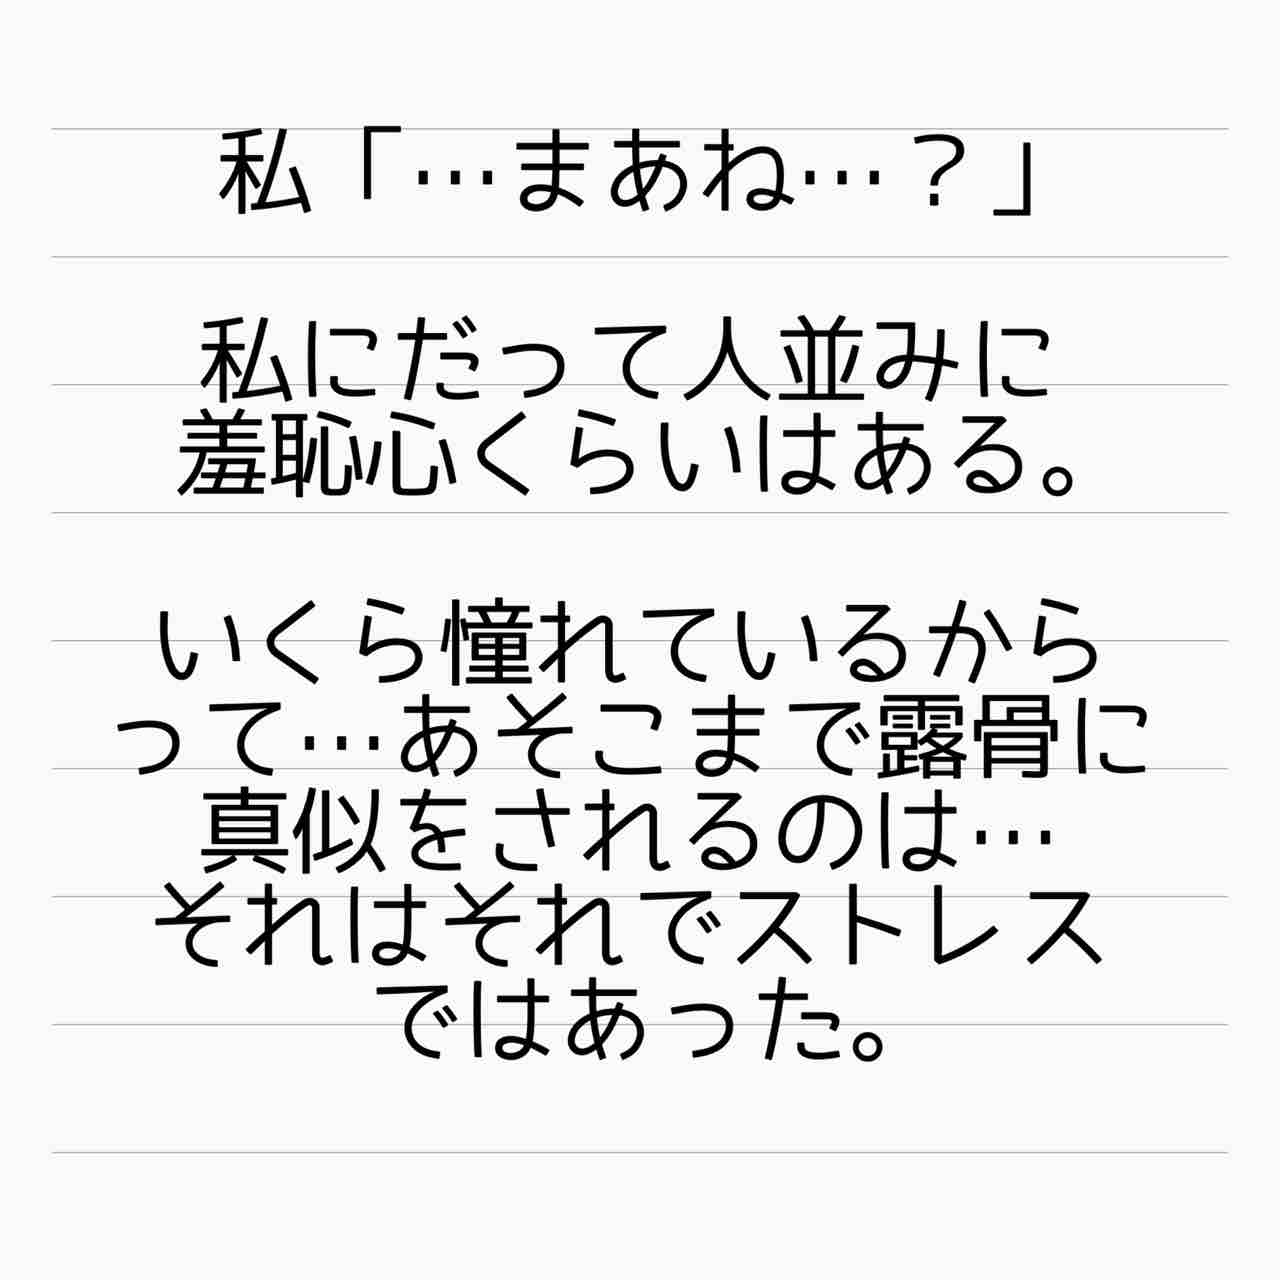 私「…まあね…？」
私にだって人並みに
羞恥心くらいはある。
いくら憧れているから
って…あそこまで露骨に
真似をされるのは…
それはそれでストレス
ではあった。